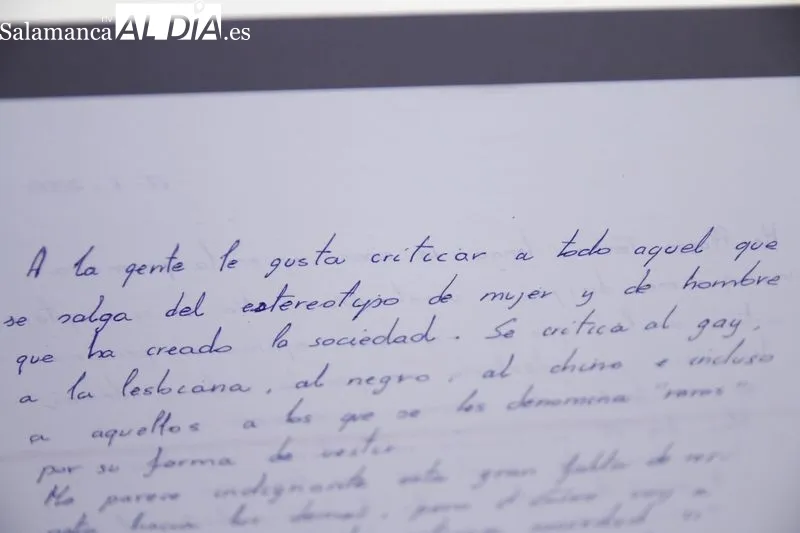 Salamanca AL DÍA.es
A la gente le gusta criticar a todo aquel que
se salga del estereotipo de mujer y de hombre
que ha creado la sociedad. Se critica al gay,
a la lesbiana, al negro, al chino e incluso
a aquellos a los que se les denomina "raros"
por su forma de vestir.
Me parece indignante esta gran falta de